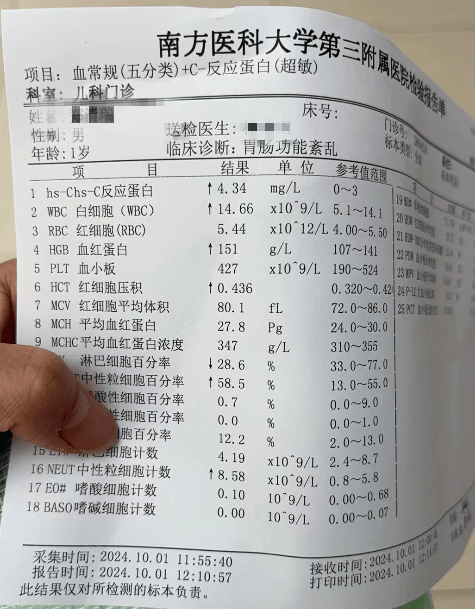 南方医科大学第三附属医院检验报告单
项目: 血常规(五分类)+C-反应蛋白(超敏)
科室: 儿科门诊
姓名: 瑞 床号: 门诊号:
性别: 男 送检医生: 标本类型:
年龄: 1岁 临床诊断: 胃肠功能紊乱
项 目 结果 单 位 参考值范围
1 hs-Chs-C反应蛋白 ↑ 4.34 mg/L 0~3
2 WBC 白细胞 (WBC) ↑ 14.66 x10^9/L 5.1~14.1
3 RBC 红细胞(RBC) 5.44 x10^12/L 4.00~5.50
4 HGB 血红蛋白 ↑ 151 g/L 107~141
5 PLT 血小板 427 x10^9/L 190~524
6 HCT 红细胞压积 ↑ 0.436 0.320~0.42
7 MCV 红细胞平均体积 80.1 fL 72.0~86.0
8 MCH 平均血红蛋白 27.8 Pg 24.0~30.0
9 MCHC平均血红蛋白浓度 347 g/L 310~355
淋巴细胞百分率 ↓ 28.6 % 33.0~77.0
中性粒细胞百分率 ↑ 58.5 % 13.0~55.0
酸性细胞百分率 0.7 % 0.0~9.0
性细胞百分率 0.0 % 0.0~1.0
细胞百分率 12.2 % 2.0~13.0
15 细胞计数 4.19 x10^9/L 2.4~8.7
16 NEUT中性粒细胞计数 ↑ 8.58 x10^9/L 0.8~5.8
17 EO# 嗜酸细胞计数 0.10 10^9/L 0.00~0.68
18 BASO嗜碱细胞计数 0.00 10^9/L 0.00~0.07
19
20
21
22 PDW
23 MPV
24 P-LC
25 PCT
采集时间: 2024.10.01 11:55:40 接收时间: 2024.10.01
报告时间: 2024.10.01 12:10:57 打印时间: 2024.10.01
此结果仅对所检测的标本负责。